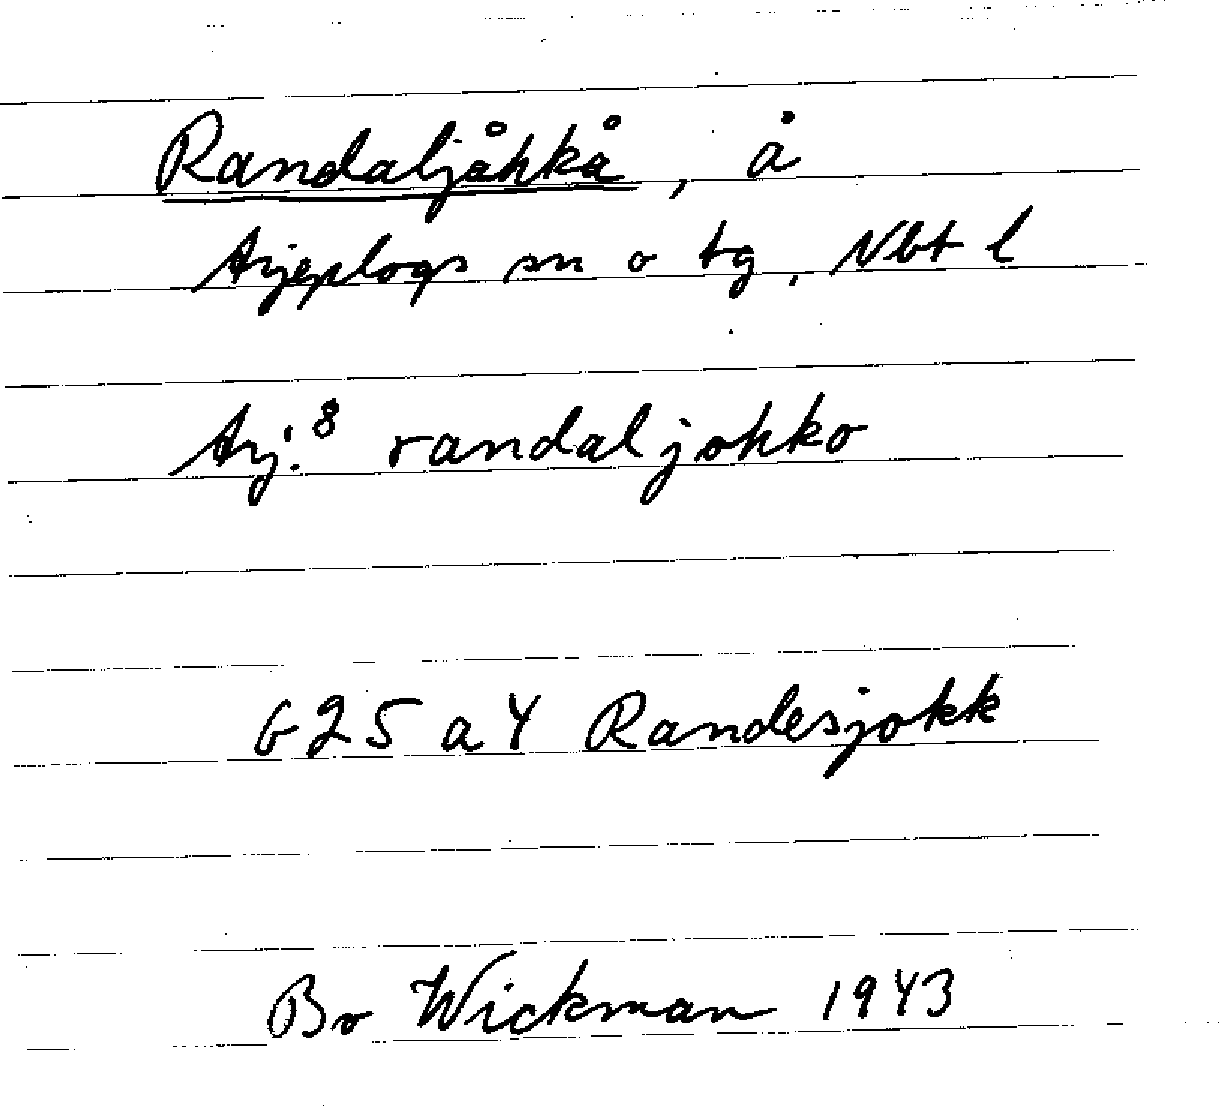 Randaljåhkå, å
Arjeplogs sn o tg, Nbt l
Arj:8 randaljohko
G25 a 4 Randesjokk
Bo Wickman 1943